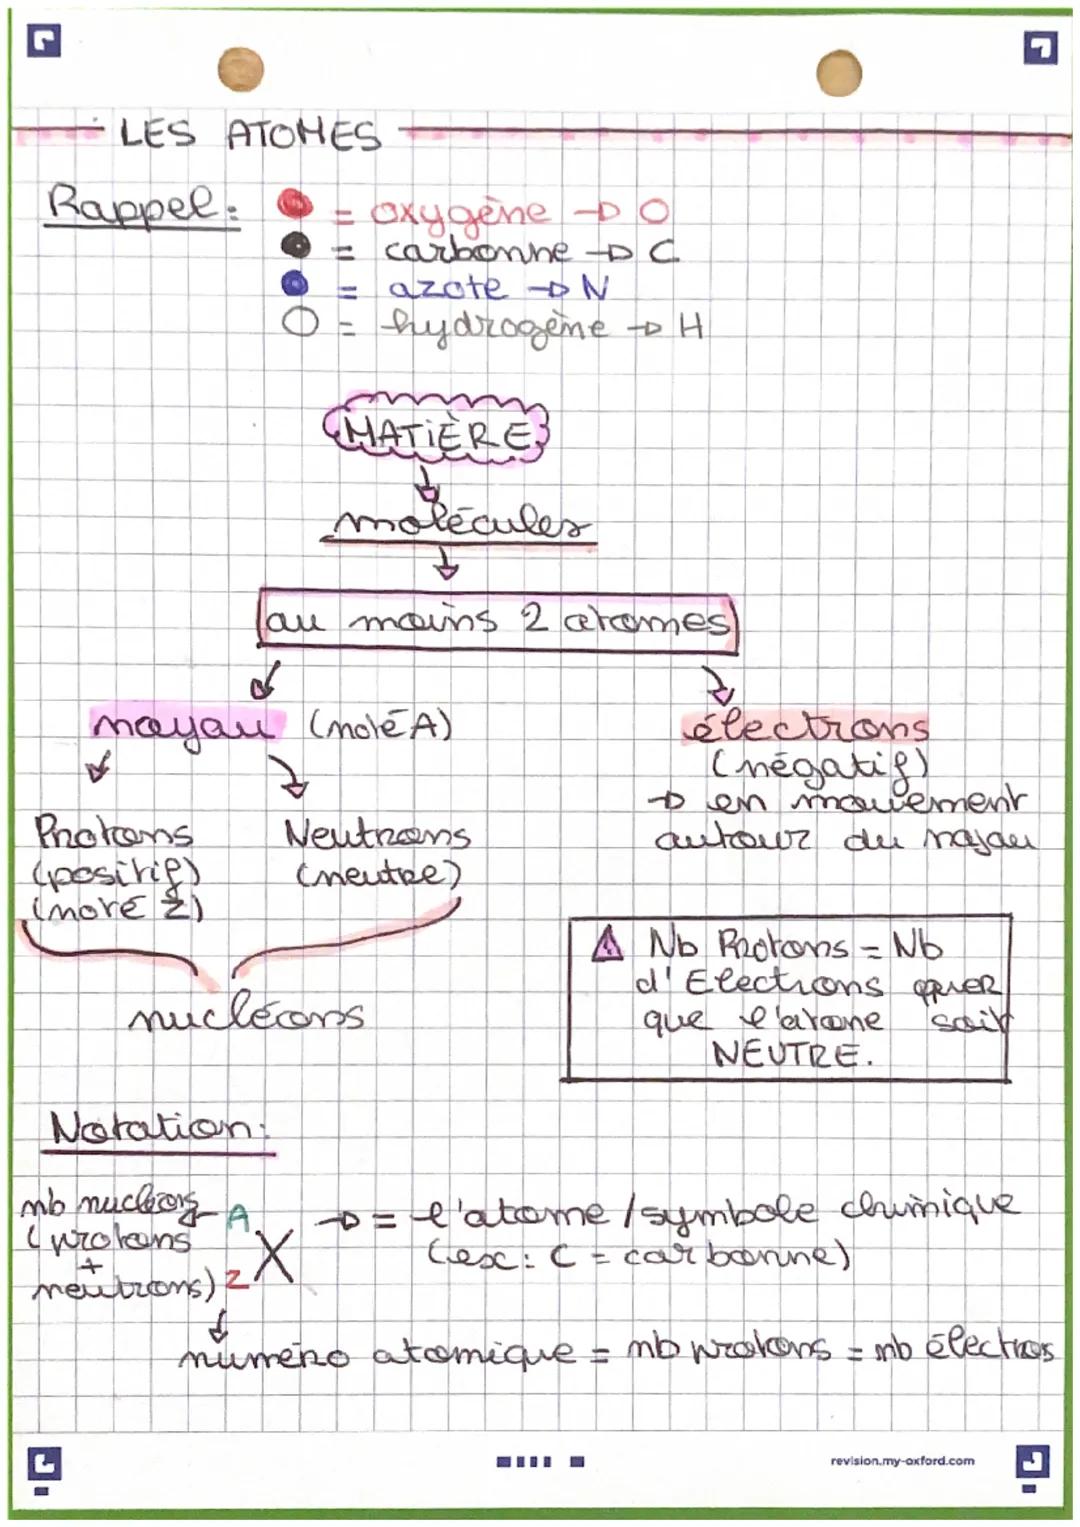 LES ATOMES
Rappel:
= oxygène → O
= carbonne → C
= azote → N
= hydrogène → H
MATIÈRE
molécules
au moins 2 atomes
noyau (noté A)
électrons
(négatif)
→ en mouvement
autour du noyau
Protons
(positif)
(noté Z)
Neutrons
(neutre)
nucléons
⚠ Nb Protons = Nb
d'Electrons pour
que l'atome soit
NEUTRE.
Notation:
nb nucléons
(protons
+
neutrons)
A
Z
X
→ = l'atome / symbole chimique
(ex: C = carbonne)
numéro atomique = nb protons = nb électrons
revision.my-oxford.com